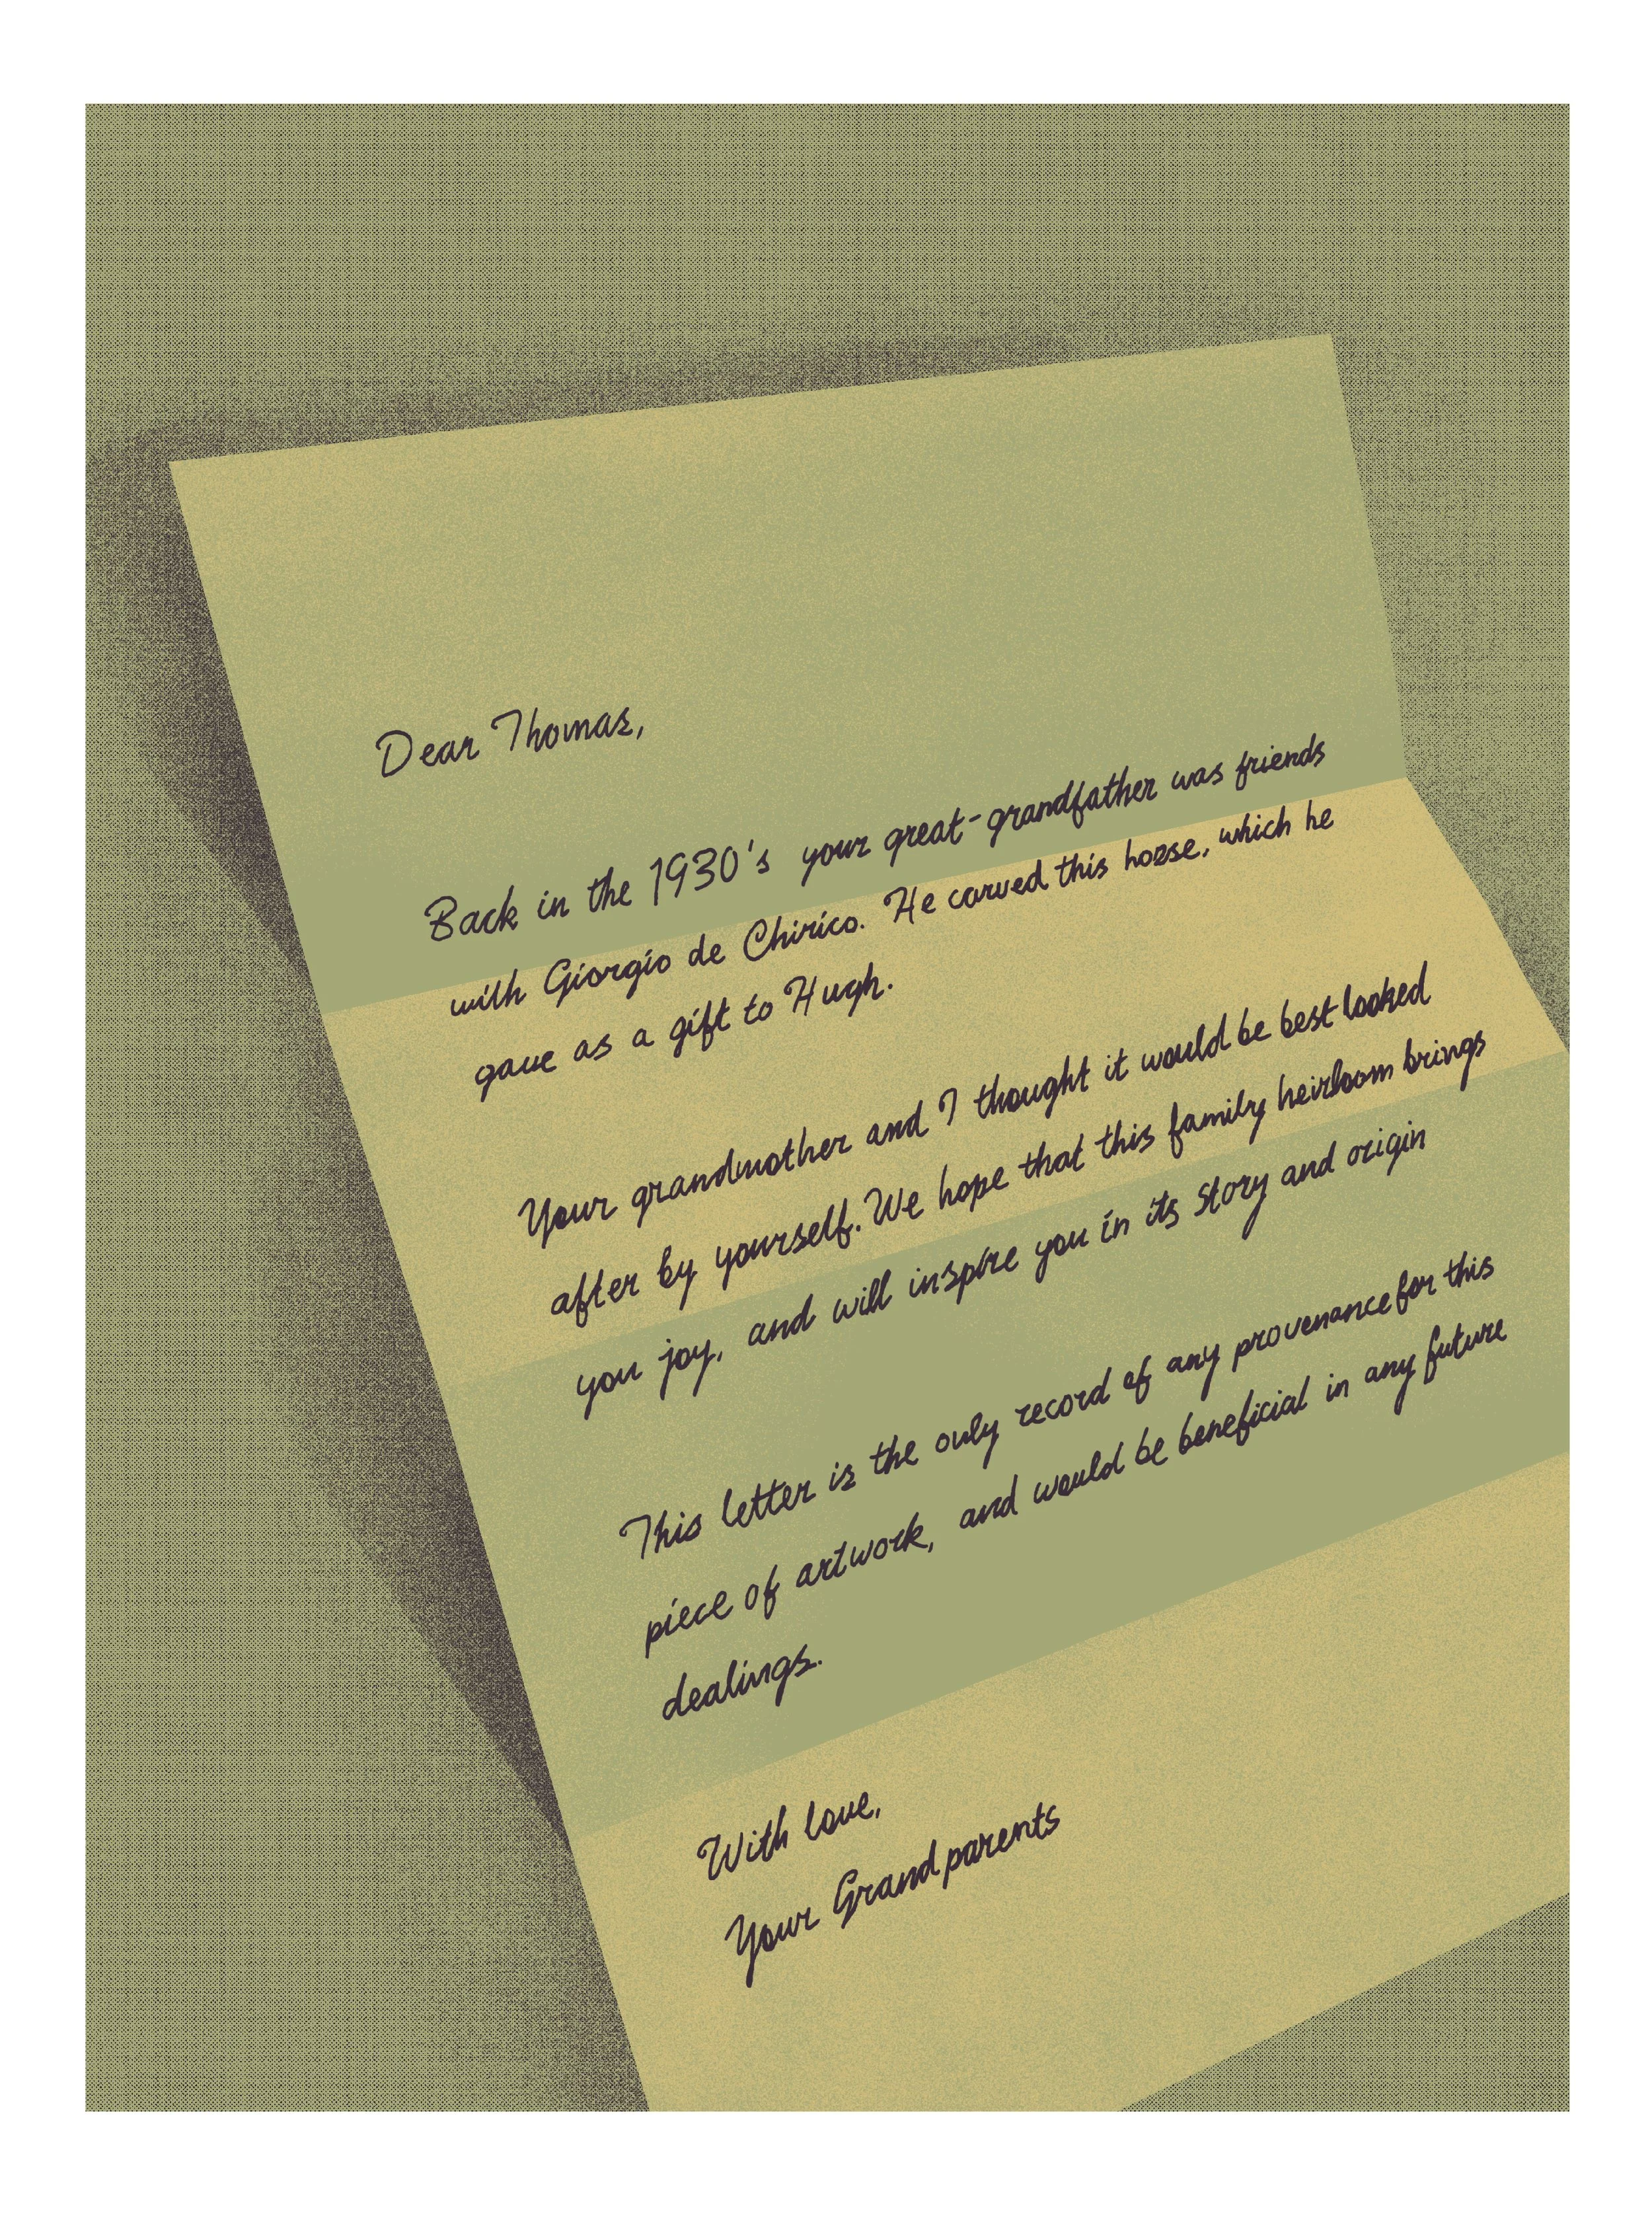 Dear Thomas,
Back in the 1930's your great-grandfather was friends
with Giorgio de Chirico. He carved this horse, which he
gave as a gift to Hugh.
Your grandmother and I thought it would be best looked
after by yourself. We hope that this family heirloom brings
you joy, and will inspire you in its story and origin
This letter is the only record of any provenance for this
piece of artwork, and would be beneficial in any future
dealings.
With love,
Your Grandparents